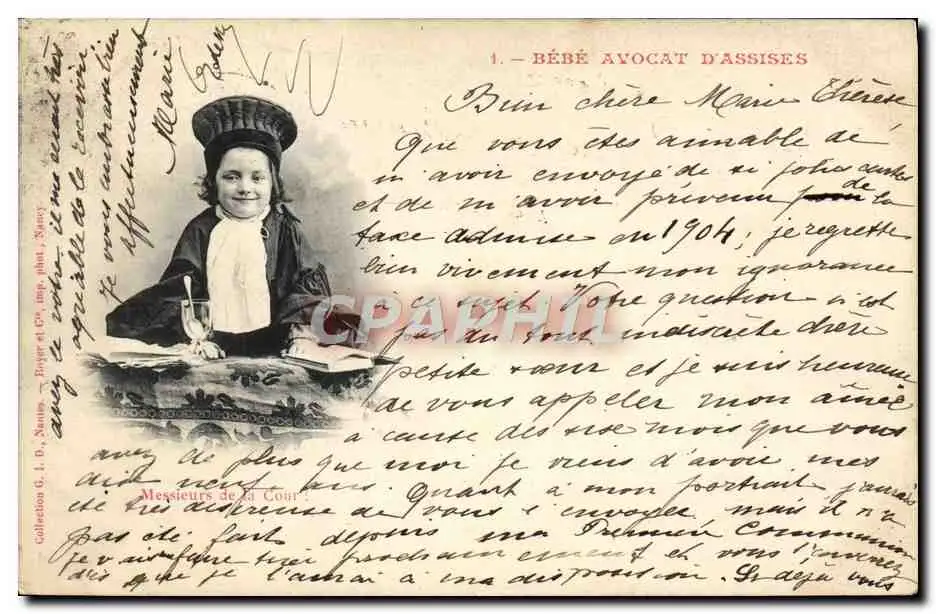 1. – BÉBÉ AVOCAT D'ASSISES
Bien chère Marie Thérèse
Que vous êtes aimable de
m'avoir envoyé de si jolies cartes
et de m'avoir prévenu de la
taxe admise en 1904; je regrette
bien vivement mon ignorance
à ce sujet Votre question n'est
pas du tout indiscrète chère
petite sœur et je suis heureuse
de vous appeler mon aînée
à cause des six mois que vous
avez de plus que moi je viens d'avoir mes
dix neuf ans. Quant à mon portrait j'aurais
été très désireuse de vous l'envoyer mais il n'a
pas été fait depuis ma Première Communion
je vais faire tirer prochainement et vous l'aurez
dès que je l'aurai à ma disposition. Si déjà vous
avez le votre il me serait très
agréable de le recevoir
Je vous embrasse bien
affectueusement
Marie
Messieurs de la Cour !
Collection G. I. D., Nantes. — Royer et Cie, imp. phot., Nancy
CPAPHIL